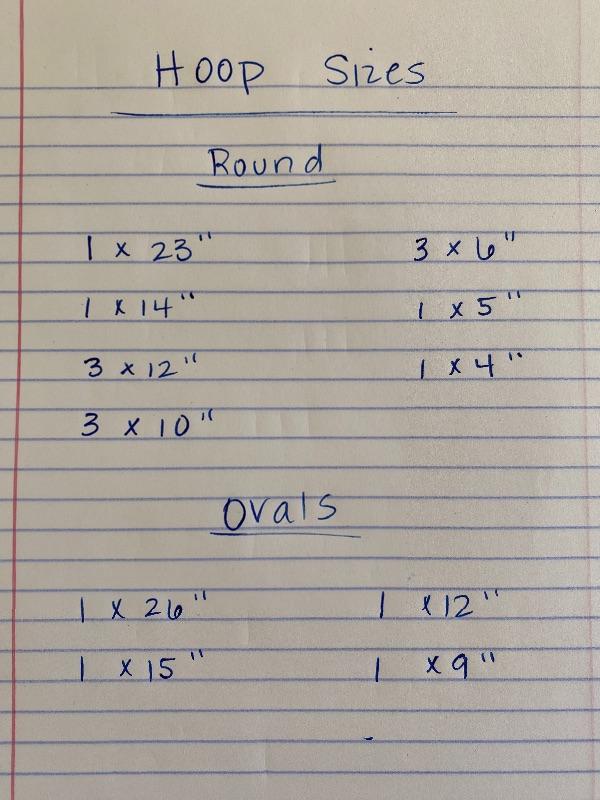 Hoop Sizes
Round
1 x 23" 3 x 6"
1 x 14" 1 x 5"
3 x 12" 1 x 4"
3 x 10"
Ovals
1 x 26" 1 x 12"
1 x 15" 1 x 9"